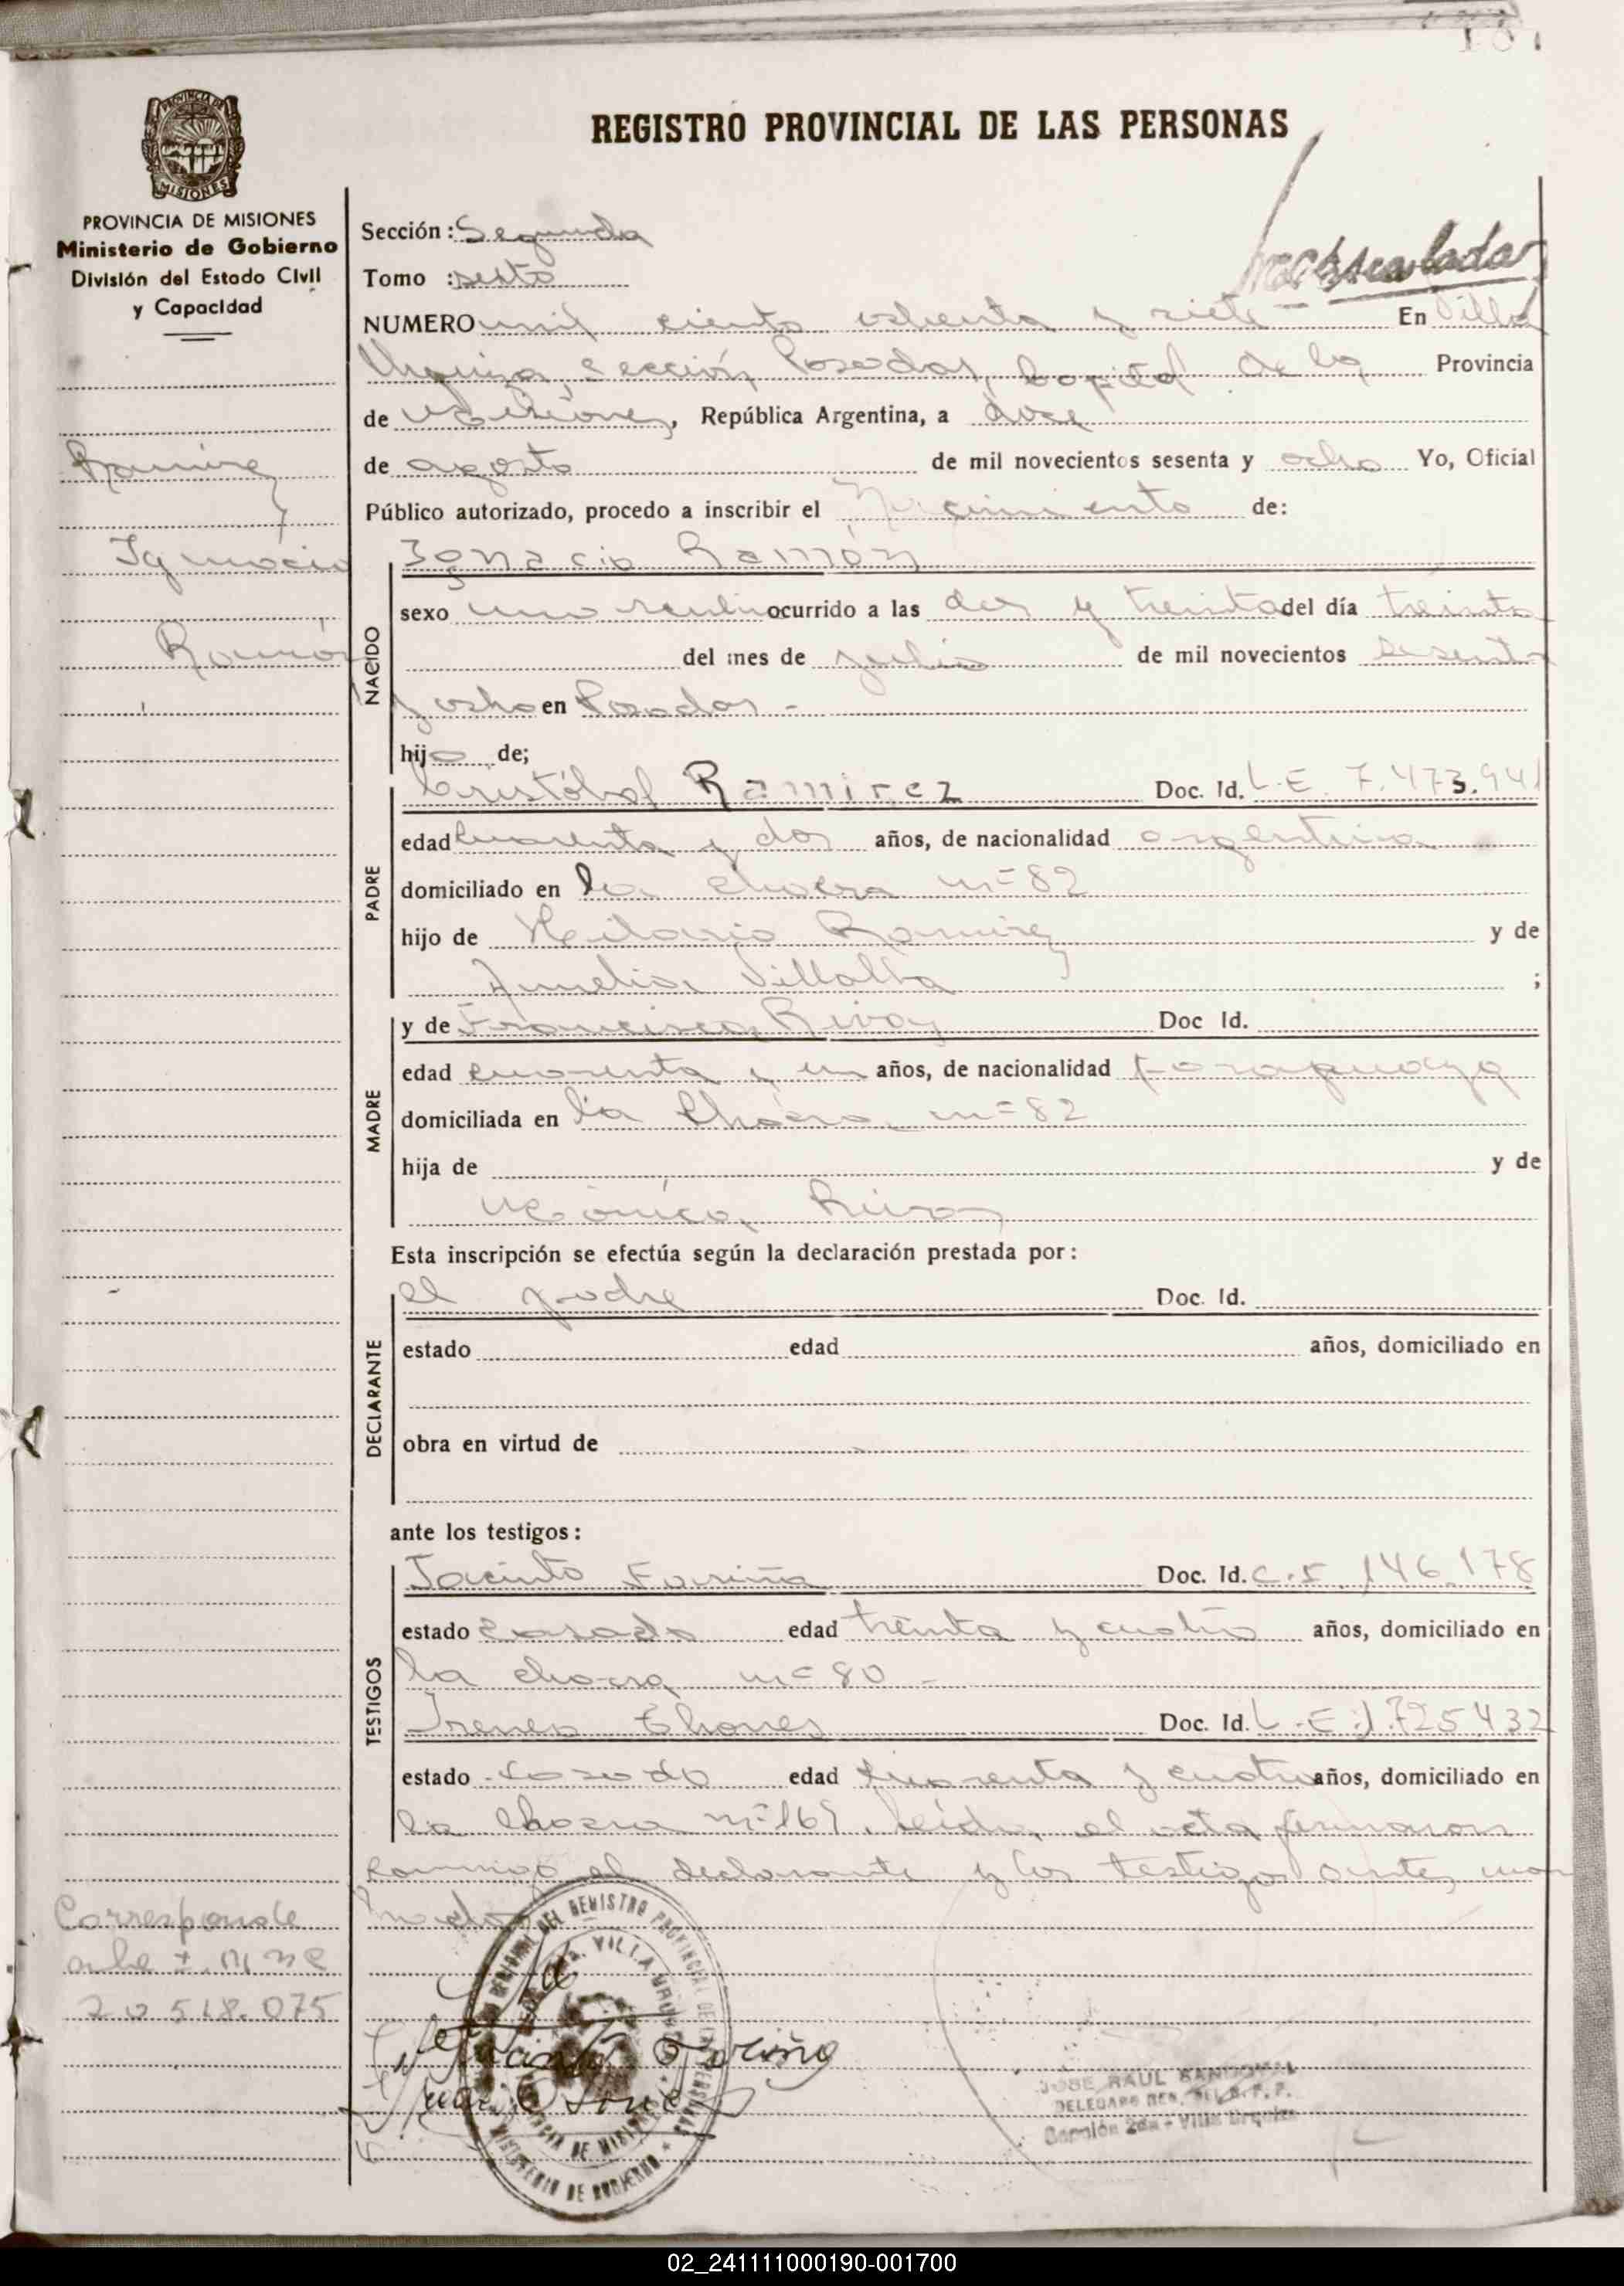 REGISTRO PROVINCIAL DE LAS PERSONAS
PROVINCIA DE MISIONES
PROVINCIA DE MISIONES
Ministerio de Gobierno
División del Estado Civil
y Capacidad
Ramirez
Ignacio
Ramón
Sección: Segunda
Tomo : sexto
NUMERO mil ciento ochenta y siete En Villa
Urquiza, Sección Posadas, Capital de la Provincia
de Misiones, República Argentina, a doce
de agosto de mil novecientos sesenta y ocho Yo, Oficial
Público autorizado, procedo a inscribir el Nacimiento de:
NACIDO
Ignacio Ramón
sexo masculino ocurrido a las dos y treinta del día treinta
del mes de julio de mil novecientos sesenta
y ocho en Posadas -
hijo de;
PADRE
Cristóbal Ramirez Doc. Id. L.E. 7.473.941
edad cuarenta y dos años, de nacionalidad argentina
domiciliado en la chacra nº 82
hijo de Hilario Ramirez y de
Amelia Villalba ;
MADRE
y de Francisca Rivas Doc Id.
edad cuarenta y un años, de nacionalidad paraguaya
domiciliada en la Chacra nº 82
hija de y de
Mónica Rivas
Esta inscripción se efectúa según la declaración prestada por:
DECLARANTE
el padre Doc. Id.
estado edad años, domiciliado en
obra en virtud de
ante los testigos:
TESTIGOS
Jacinto Fariña Doc. Id. C.I. 146.178
estado casado edad treinta y cuatro años, domiciliado en
la chacra nº 80 -
Ireneo Doc. Id. L.E. 1.725.432
estado casado edad cuarenta y cuatro años, domiciliado en
la chacra nº 169. Leída el acta firmaron
conmigo el declarante y los testigos antes
Corresponde
20.518.075
Jacinto Fariña
JOSE RAUL SANDOVAL
DELEGADO
Sección 2da - Villa Urquiza
02_241111000190-001700